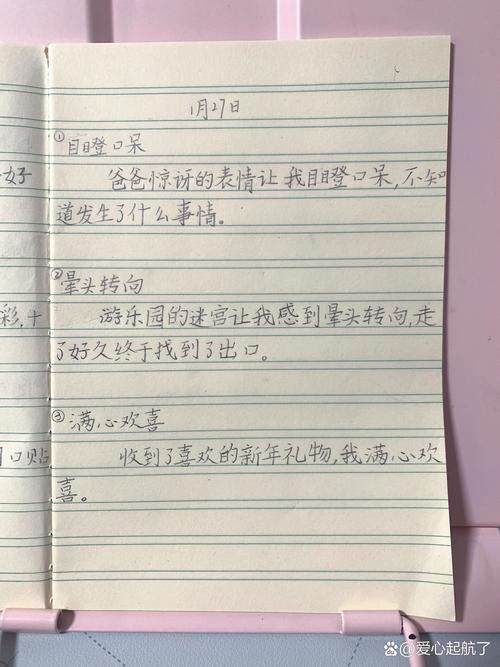 1月27日
①目瞪口呆
好
爸爸惊讶的表情让我目瞪口呆,不知
道发生了什么事情。
②晕头转向
彩,十
游乐园的迷宫让我感到晕头转向,走
了好久终于找到了出口。
③满心欢喜
口贴
收到了喜欢的新年礼物,我满心欢
喜。
爱心起航了